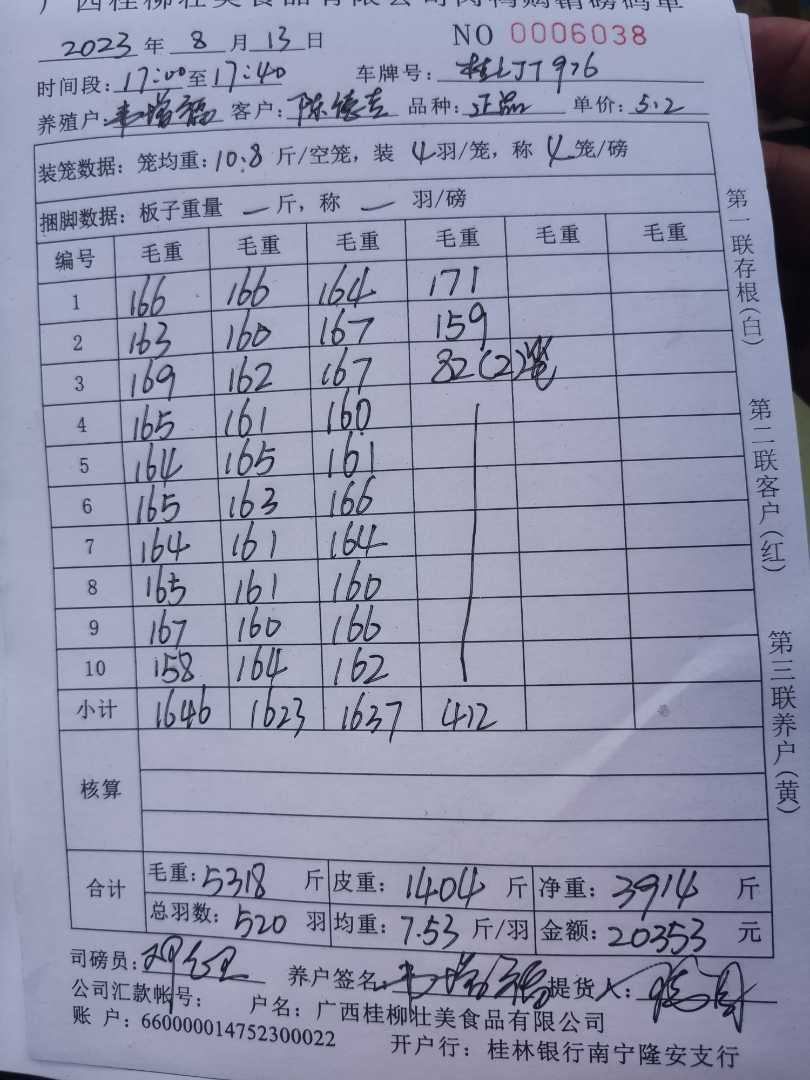 广西桂柳壮美食品有限公司肉鸭购销磅码单
2023 年 8 月 13 日 NO 0006038
时间段: 17:00 至 17:40 车牌号: 桂LJT976
养殖户: 韦增福 客户: 陈德吉 品种: 正品 单价: 5.2
装笼数据: 笼均重: 10.8 斤/空笼, 装 4 羽/笼, 称 4 笼/磅
捆脚数据: 板子重量 — 斤, 称 — 羽/磅
编号 毛重 毛重 毛重 毛重 毛重 毛重
1 166 166 164 171
2 163 160 167 159
3 169 162 167 82(2)笼
4 165 161 160
5 164 165 161
6 165 163 166
7 164 161 164
8 165 161 160
9 167 160 166
10 158 164 162
小计 1646 1623 1637 412
核算
合计 毛重: 5318 斤 皮重: 1404 斤 净重: 3914 斤
总羽数: 520 羽 均重: 7.53 斤/羽 金额: 20353 元
司磅员: 养户签名: 韦增福 提货人:
公司汇款帐号: 户名: 广西桂柳壮美食品有限公司
账 户: 660000014752300022 开户行: 桂林银行南宁隆安支行
第一联存根(白)
第二联客户(红)
第三联养户(黄)